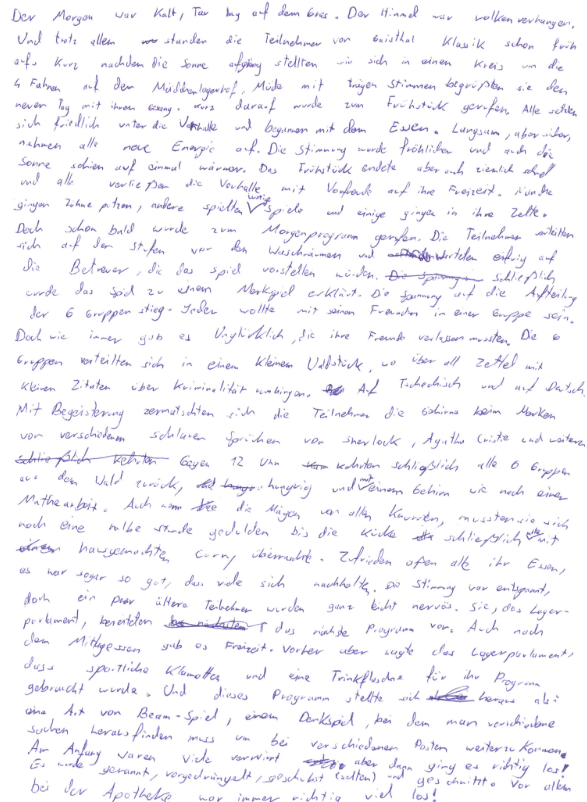 Der Morgen war Kalt, Tau lag auf dem Gras. Der Himmel war wolkenverhangen.
Und trotz allem standen die Teilnehmer von Gaisthal Klassik schon früh
auf. Kurz nachdem die Sonne aufging stellten sie sich in einen Kreis um die
4 Fahnen auf dem Mädchenlagerhof. Müde mit trägen Stimmen begrüßten sie den
neuen Tag mit ihrem Gesang. Kurz darauf wurde zum Frühstück gerufen. Alle setzten
sich friedlich unter die Vorhalle und begannen mit dem Essen. Langsam, aber sicher,
nahmen alle neue Energie auf. Die Stimmung wurde fröhlicher und auch die
Sonne schien auf einmal wärmer. Das Frühstück endete aber auch ziemlich schnell
und alle verließen die Vorhalle mit Vorfreude auf ihre Freizeit. Manche
gingen Zähne putzen, andere spielten Spiele und einige gingen in ihre Zelte.
Doch schon bald wurde zum Morgenprogramm gerufen. Die Teilnehmer verteilten
sich auf den Stufen vor den Waschräumen und warteten eifrig auf
die Betreuer, die das Spiel vorstellen würden. Schließlich
wurde das Spiel zu einem Merkspiel erklärt. Die Spannung auf die Aufteilung
der 6 Gruppen stieg. Jeder wollte mit seinen Freunden in einer Gruppe sein.
Doch wie immer gab es Unglücklich, die ihre Freunde verlassen mussten. Die 6
Gruppen verteilten sich in einem kleinem Waldstück, wo über all Zettel mit
kleinen Zitaten über Kriminalität umhingen. Auf Tschechisch und auf Deutsch.
Mit Begeisterung zermatschten sich die Teilnehmer die Gehirne beim Merken
von verschiedenen schlauen Sprüchen von Sherlock, Agatha Cristie und weiteren
Gegen 12 Uhr kehrten schließlich alle 6 Gruppen
aus dem Wald zurück, hungrig und mit einem Gehirn wie nach einer
Mathearbeit. Auch wenn die Mägen von allen Knurrten, mussten sie sich
noch eine halbe Stunde gedulden bis die Küche schließlich mit
hausgemachten Curry überraschte. Zufrieden aßen alle ihr Essen,
es war sogar so gut, dass viele sich nachholten. Die Stimmung war entspannt,
doch ein paar ältere Teilnehmer wurden ganz leicht nervös. Sie, das Lager-
parlament, bereiteten das nächste Programm vor. Auch nach
dem Mittagessen gab es Freizeit. Vorher aber sagte das Lagerparlament,
dass sportliche Klamotten und eine Trinkflasche für ihr Programm
gebraucht wurde. Und dieses Programm stellte sich heraus als:
eine Art von Beam-Spiel, einem Denkspiel, bei dem man verschiedene
Sachen herausfinden muss um bei verschiedenen Posten weiterzukommen.
Am Anfang waren viele verwirrt aber dann ging es richtig los!
Es wurde gerannt, vorgedrängelt, geschubst (selten) und geschnitten. Vor allem
bei der Apotheke war immer richtig viel los!